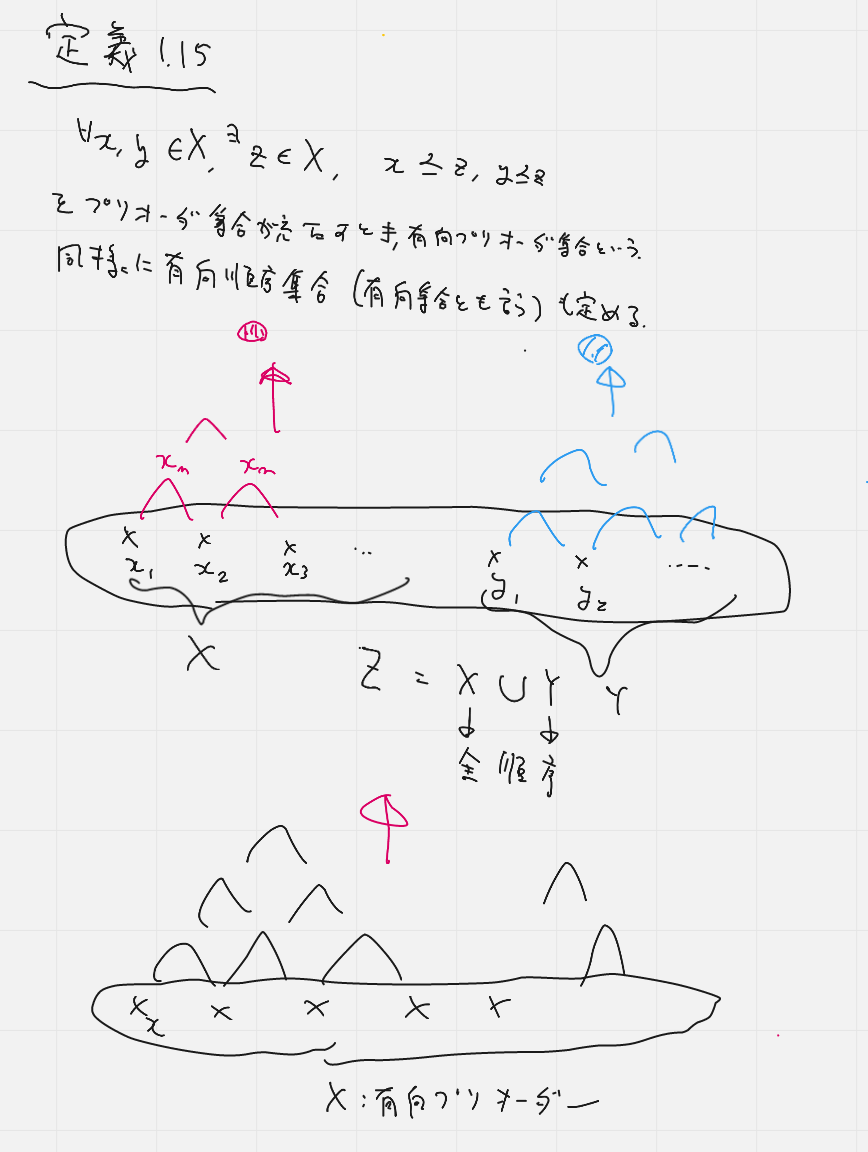 定義 1.15
∀x, y ∈ X, ∃z ∈ X, x ≦ z, y ≦ z
をプリオーダ集合が充たすとき, 有向プリオーダ集合という.
同様に有向順序集合 (有向集合とも言う) も定める.
xₙ xₘ
x₁ x₂ x₃ ...
y₁ y₂ .....
X
Y
Z = X ∪ Y
全順序
x
X : 有向プリオーダー